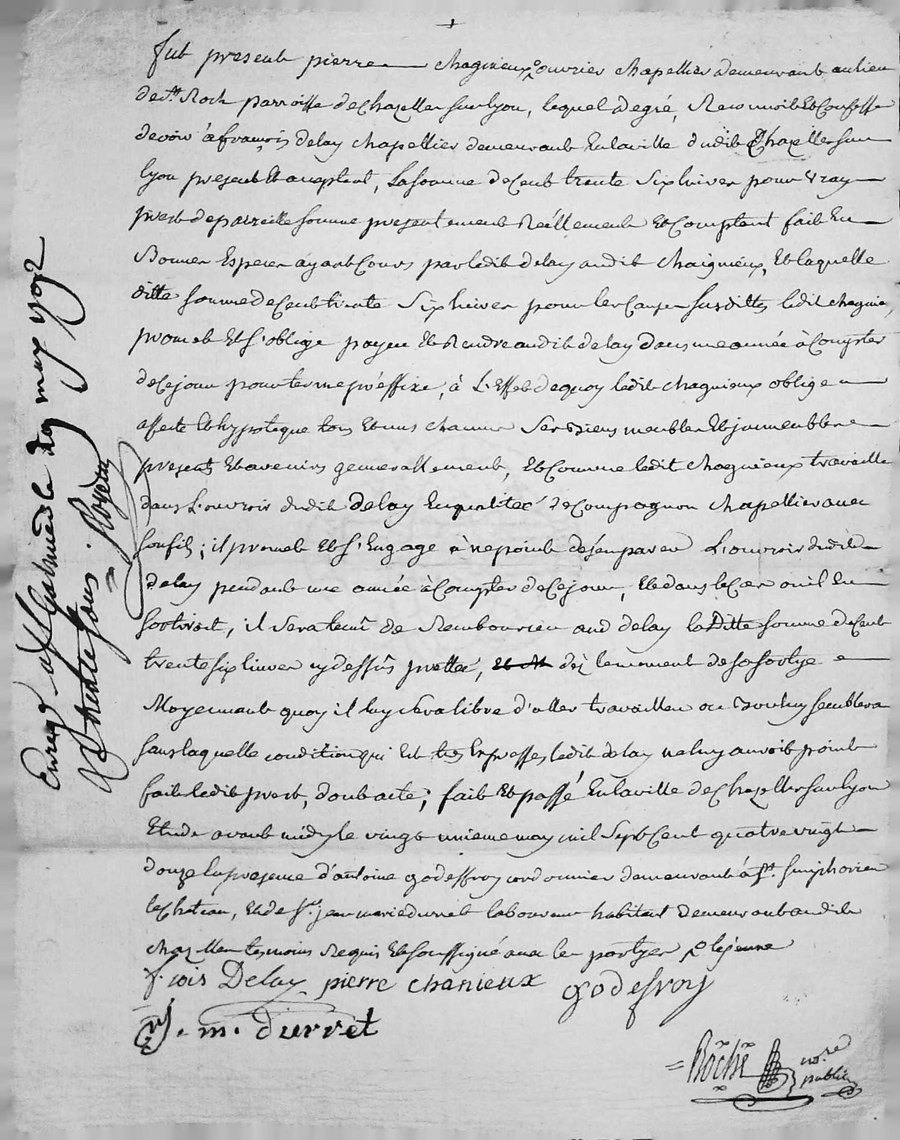 fut present pierre Chagnieux ouvrier chapellier demeurant au lieu
de St. Roch parroisse de Chazelles sur lyon, lequel de gré, Reconnoit Et Confesse
devoir à françois delay chapellier demeurant En la ville dudit Chazelles sur
lyon present Et acceptant, La somme de Cent trente Six livres pour vray
prest de pareille somme presentement Réellement Et Comptant fait En
Bonnes Especes ayant Cours par ledit delay audit Chagnieux, Et laquelle
ditte somme de Cent trente Six livres pour les Causes susdittes ledit chagnieux
promet Et s'oblige payer Et Rendre audit delay dans une année à Compter
de Ce jour pour terme préffixe, à L'Effet de quoy ledit chagnieux oblige
affecte Et hypoteque tous Et uns chacuns Ses Biens meubles Et immeubles
presents Et avenirs generallement, Et Comme ledit chagnieux travaille
dans L'ouvroir dudit delay En qualitéé de Compagnon chapellier avec
son fils; il promet Et s'Engage à ne point désemparer L'ouvroir dudit
delay pendant une année à Compter de Ce jour, Et dans le Cas où il En
sortiroit, il sera tenû de Rembourser aud delay la ditte somme de Cent
trente six livres cy dessûs prettéé, dèz le moment de sa sortye
Moyennant quoy il luy sera libre d'aller travailler où Bon luy semblera
sans laquelle condition qui Est très Expresse ledit delay ne luy auroit point
fait ledit prest, dont acte; fait Et passé En la ville de Chazelles sur lyon
Etude avant midy le vingt unieme may mil Sept Cent quatre vingt
douze En presence d'antoine godeffroy cordonnier demeurant à St. Simphorien
le Chateau, Et de Sr. jean marie durret laboureur habitant demeurant audit
chazelles temoins Requis Et soussigné avec les partyes
f. cois Delay pierre chanieux godefroy
j. m. durret
Roche no.re
public
Enreg. a St Galmier le 29 may 1792
R trente sous